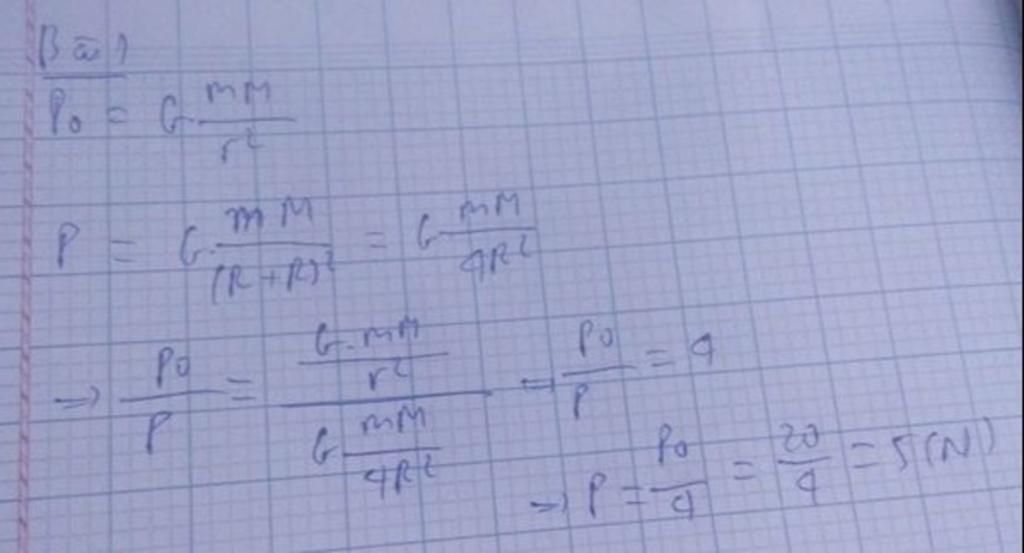 Bài 1
P₀ = G mM / r²
P = G. mM / (R + R)² = G mM / 4R²
→ P₀ / P = (G. mM / r²) / (G mM / 4R²) → P₀ / P = 4
→ P = P₀ / 4 = 20 / 4 = 5 (N)